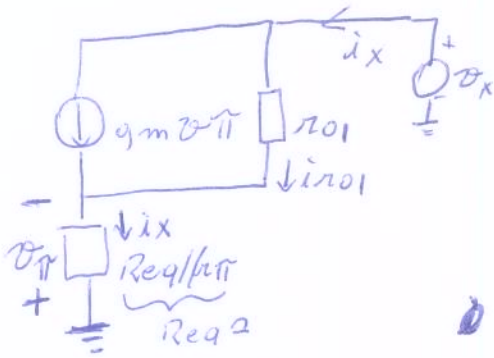 ix
+
vx
-
gmvπ
ro1
iro1
-
ix
vπ
Req//rπ
+
Req2